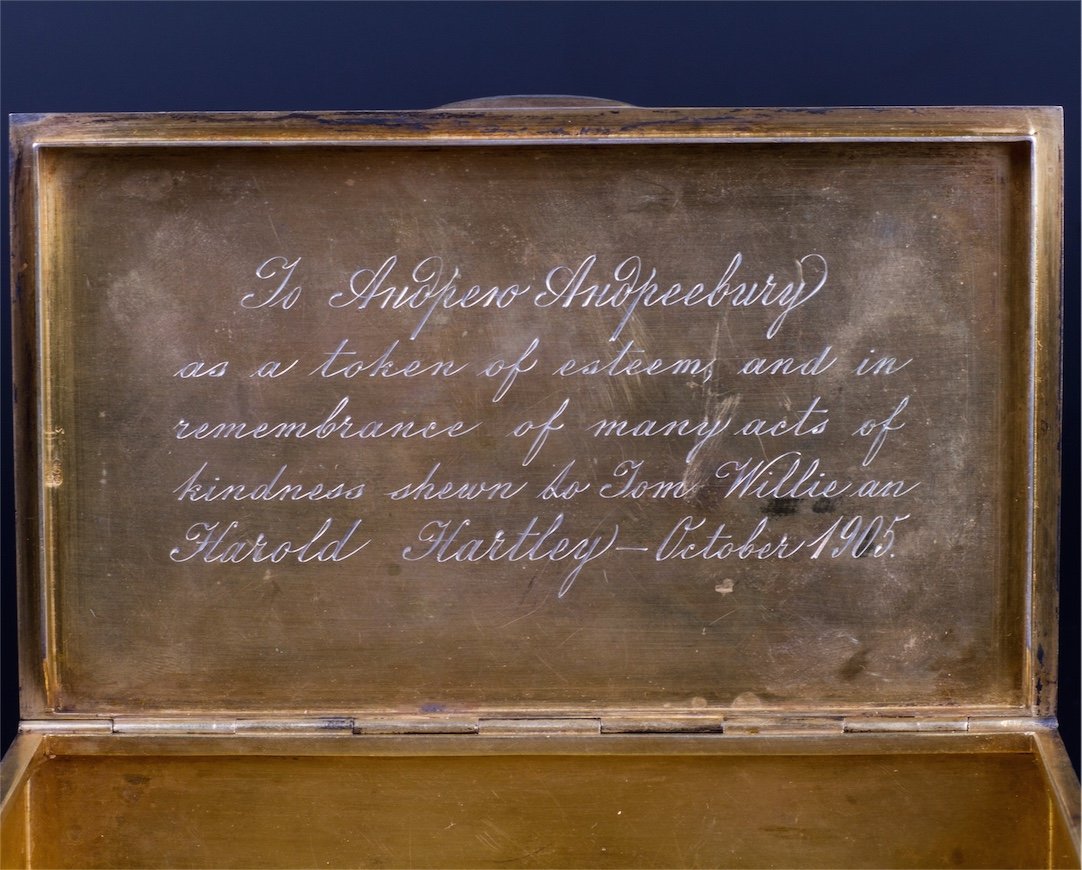 To Андрею Андреевичу
as a token of esteem, and in
remembrance of many acts of
kindness shewn to Tom Willie an
Harold Hartley – October 1905.